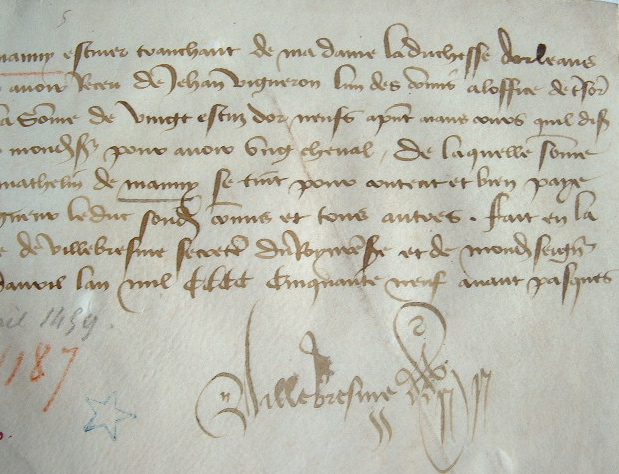 manny escuier tranchant de ma dame la duchesse dorleans
avoir receu de Jehan vigneron lun des commis a loffice de tresor
la somme de vingt escuz dor neufs aiant cours quil
mondsr pour avoir ung cheval / De laquelle somme
mathelin de manny se tient pour content et bien paye
le duc sondit commis et tous autres . Fait en la
de villebresme secretere du Roy nostre sire et de mondseignr
davril lan mil CCCC Cinquante neuf avant pasques
1459.
187
Villebresme